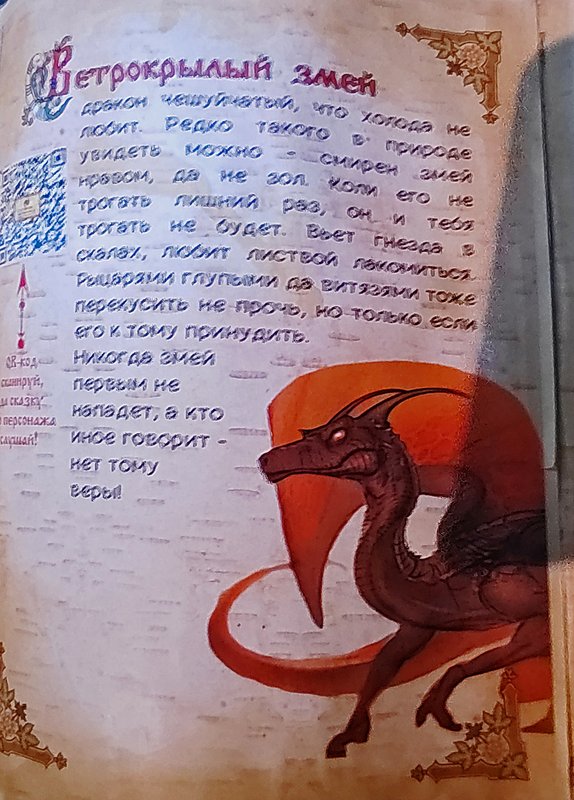 Ветрокрылый змей
дракон чешуйчатый, что холода не
любит. Редко такого в природе
увидеть можно - смирен змей
нравом, да не зол. Коли его не
трогать лишний раз, он и тебя
трогать не будет. Вьет гнезда в
скалах, любит листвой лакомиться.
Рыцарями глупыми да витязями тоже
перекусить не прочь, но только если
его к тому принудить.
Никогда змей
первым не
нападет, а кто
иное говорит -
нет тому
веры!
QR-код
сканируй,
да сказку
персонажа
слушай!